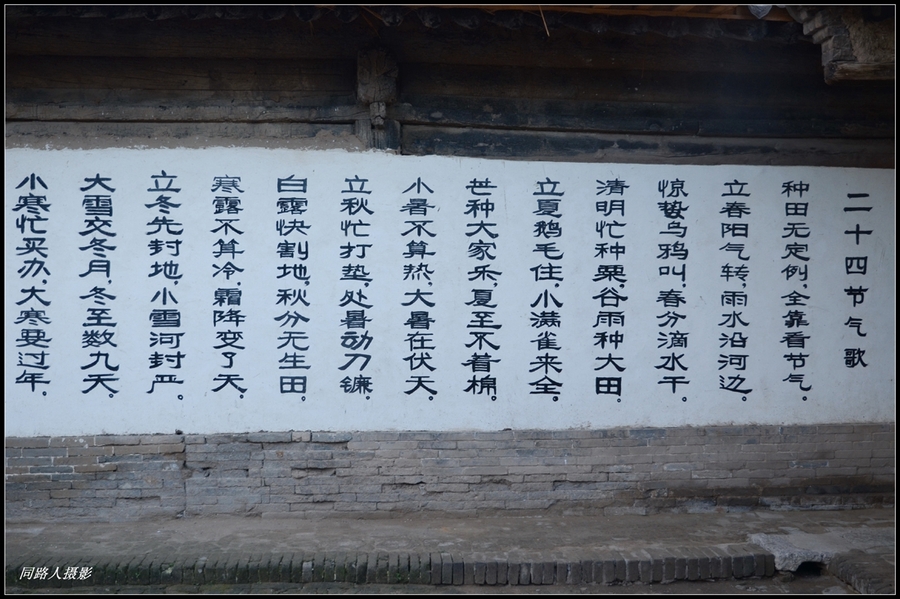 二十四节气歌
种田无定例,全靠看节气。
立春阳气转,雨水沿河边。
惊蛰乌鸦叫,春分滴水干。
清明忙种粟,谷雨种大田。
立夏鹅毛住,小满雀来全。
世种大家乐,夏至不着棉。
小暑不算热,大暑在伏天。
立秋忙打垫,处暑动刀镰。
白露快割地,秋分无生田。
寒露不算冷,霜降变了天。
立冬先封地,小雪河封严。
大雪交冬月,冬至数九天。
小寒忙买办,大寒要过年。
同路人摄影